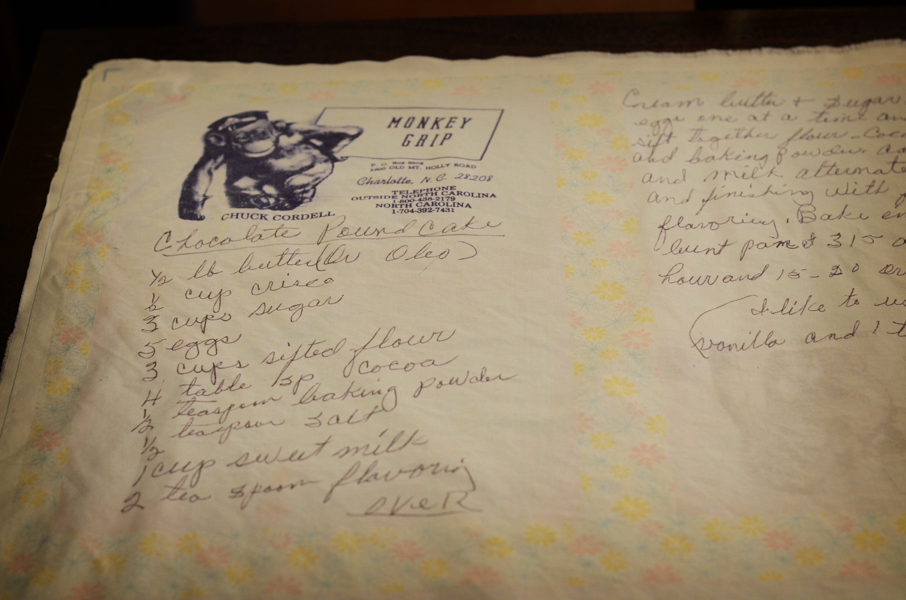 MONKEY
GRIP
OLD MT. HOLLY ROAD
Charlotte, N.C. 28208
TELEPHONE
OUTSIDE NORTH CAROLINA
1-800-438-2179
NORTH CAROLINA
1-704-392-7431
CHUCK CORDELL
Chocolate Pound Cake
1/2 lb butter (Or Oleo)
1/2 cup crisco
3 cups sugar
5 eggs
3 cups sifted flour
4 table sp cocoa
1/2 teaspoon baking powder
1/2 teaspoon salt
1 cup sweet milk
2 tea spoon flavoring
over
Cream butter + sugar
eggs one at a time an
sift together flour - Coc
and baking powder. a
and milk alternate
and finishing with
flavoring. Bake
bunt pan 315
hour and 15-20
I like to u
vanilla and 1 t